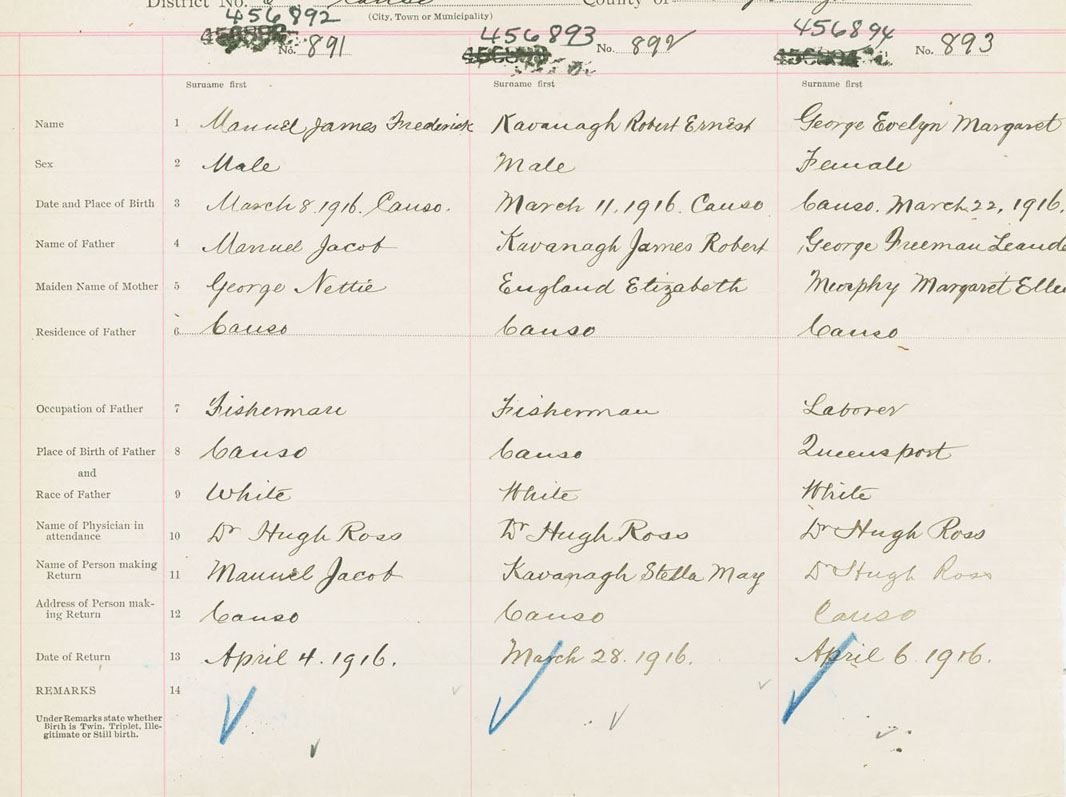 District No.
County of
(City, Town or Municipality)
456892 456893 456894
No. 891 No. 892 No. 893
Surname first Surname first Surname first
Name 1 Manuel James Frederick Kavanagh Robert Ernest George Evelyn Margaret
Sex 2 Male Male Female
Date and Place of Birth 3 March 8. 1916. Canso. March 11, 1916. Canso Canso. March 22, 1916.
Name of Father 4 Manuel Jacob Kavanagh James Robert George Freeman
Maiden Name of Mother 5 George Nettie England Elizabeth Murphy Margaret
Residence of Father 6 Canso Canso Canso
Occupation of Father 7 Fisherman Fisherman Laborer
Place of Birth of Father 8 Canso Canso Queensport
and
Race of Father 9 White White White
Name of Physician in
attendance 10 Dr Hugh Ross Dr Hugh Ross Dr Hugh Ross
Name of Person making
Return 11 Manuel Jacob Kavanagh Stella May Dr Hugh Ross
Address of Person mak-
ing Return 12 Canso Canso Canso
Date of Return 13 April 4. 1916. March 28. 1916. April 6. 1916.
REMARKS 14
Under Remarks state whether
Birth is Twin, Triplet, Ille-
gitimate or Still birth.